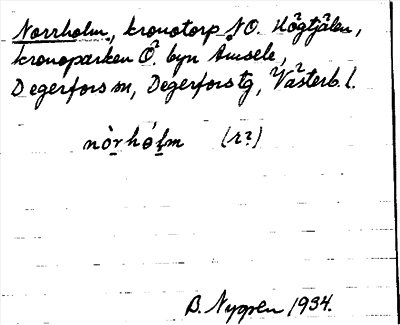 Norrholm, kronotorp NO. Högtjälen,
kronoparken Ö. byn Åmsele,
Degerfors sn, Degerfors tg, Västerb. l.
nòrhólm (r?)
B. Nygren 1934.